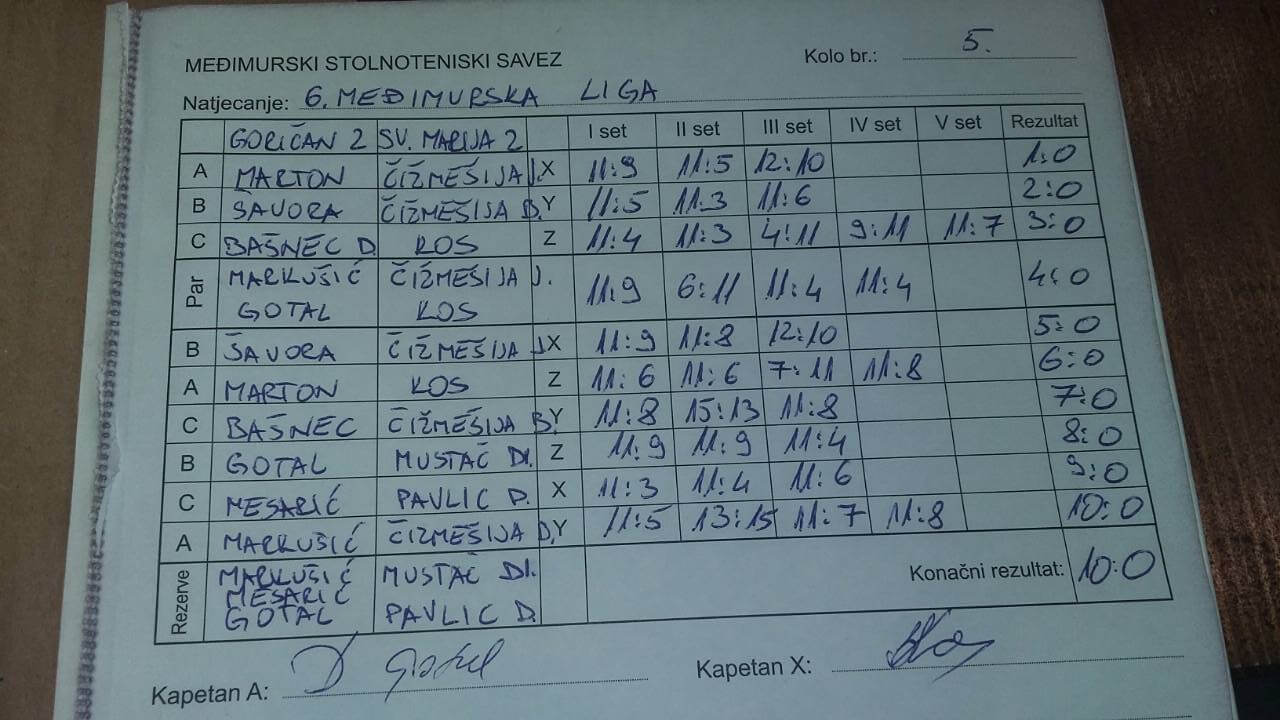 MEĐIMURSKI STOLNOTENISKI SAVEZ Kolo br.: 5.
Natjecanje: 6. MEĐIMURSKA LIGA
GORIČAN 2 SV. MARIJA 2 I set II set III set IV set V set Rezultat
A MARTON ČIŽMEŠIJA J. X 11:9 11:5 12:10 1:0
B ŠAVORA ČIŽMEŠIJA D. Y 11:5 11:3 11:6 2:0
C BAŠNEC D. KOS Z 11:4 11:3 4:11 9:11 11:7 3:0
Par MARKUŠIĆ ČIŽMEŠIJA J. 11:9 6:11 11:4 11:4 4:0
GOTAL KOS
B ŠAVORA ČIŽMEŠIJA J. X 11:9 11:8 12:10 5:0
A MARTON KOS Z 11:6 11:6 7:11 11:8 6:0
C BAŠNEC ČIŽMEŠIJA D. Y 11:8 15:13 11:8 7:0
B GOTAL MUSTAČ DI. Z 11:9 11:9 11:4 8:0
C MESARIĆ PAVLIC D. X 11:3 11:4 11:6 9:0
A MARKUŠIĆ ČIŽMEŠIJA D. Y 11:5 13:15 11:7 11:8 10:0
Rezerve MARKUŠIĆ MUSTAČ DI.
MESARIĆ
GOTAL PAVLIC D.
Konačni rezultat: 10:0
Kapetan A: D Gotal Kapetan X: